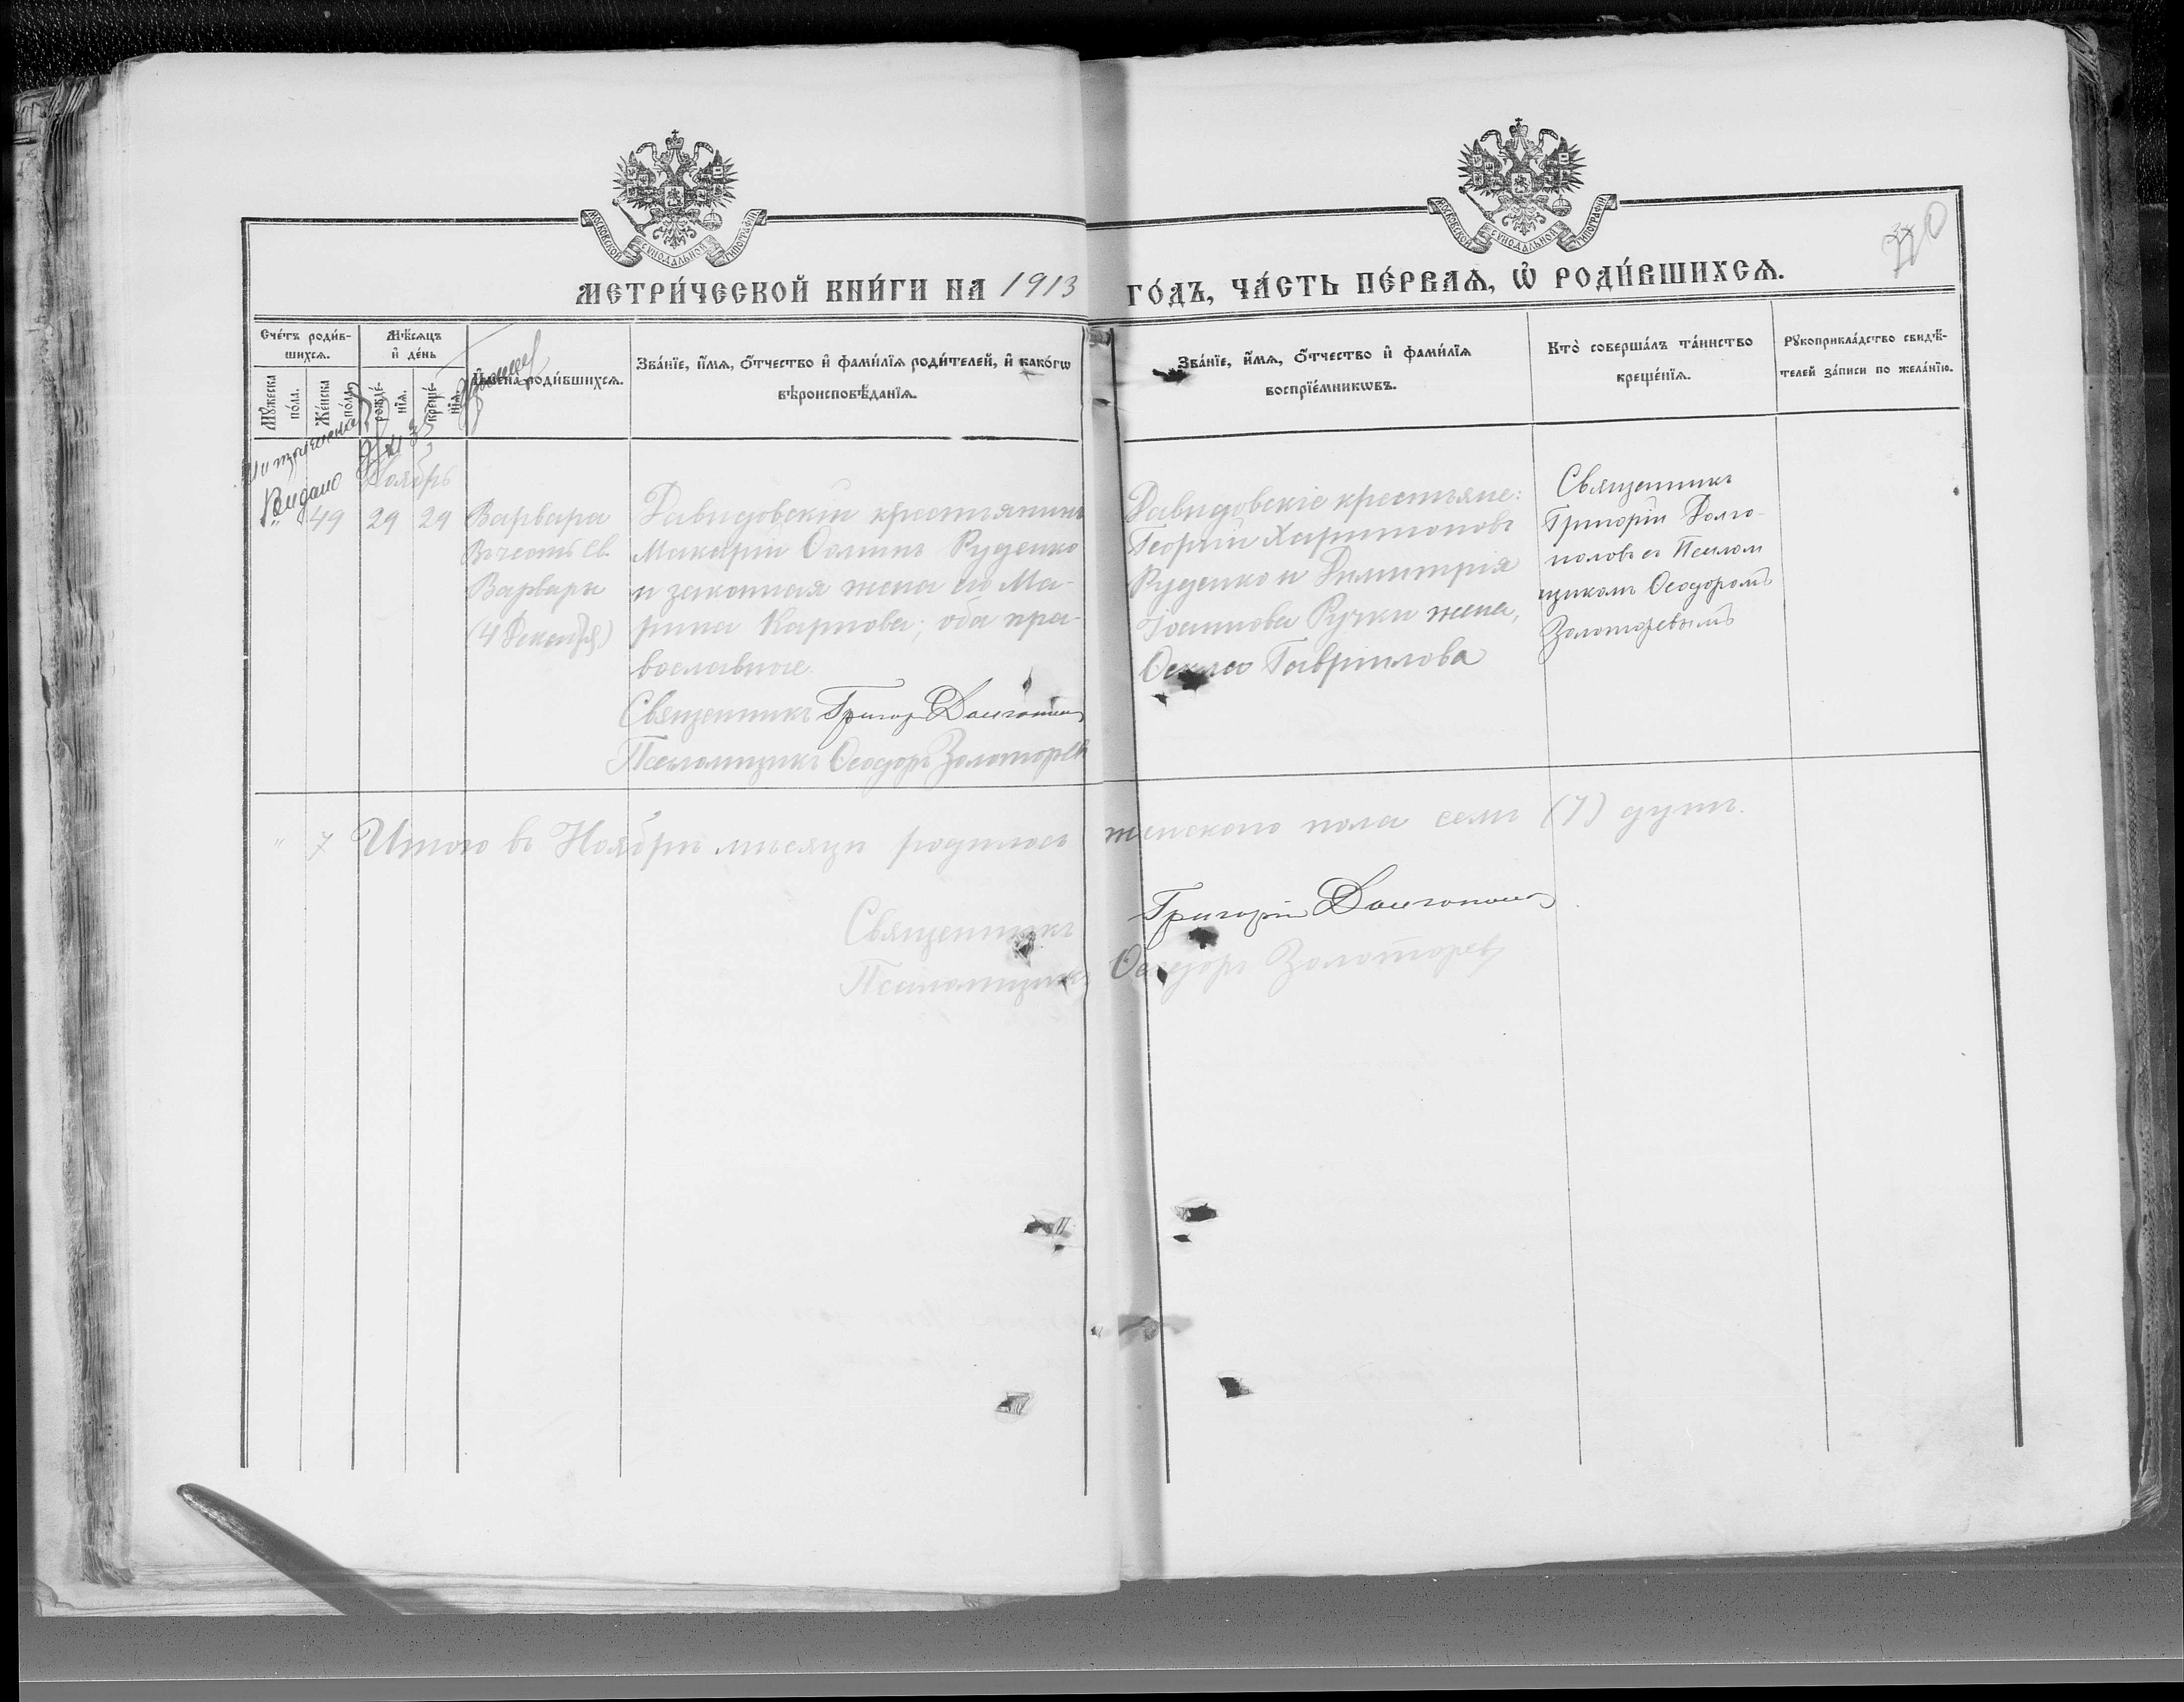 МОСКОВСКОЙ СѴНОДАЛЬНОЙ ТИПОГРАФІИ
МОСКОВСКОЙ СѴНОДАЛЬНОЙ ТИПОГРАФІИ
МЕТРИ́ЧЕСКОЙ КНИ́ГИ НА 1913 ГО́ДЪ, ЧА́СТЬ ПЕ́РВАѦ, Ѡ҆ РОДИ́ВШИХСѦ.
Сче́тъ роди́в-
шихсѧ.
Мꙋ́жеска
по́ла.
Же́нска
по́ла.
Мѣ́сѧцъ
и҆ де́нь
рожде́-
нїѧ.
креще́-
нїѧ.
И҆мена̀ роди́вшихсѧ.
Зва́нїе, и҆́мѧ, ѻ҆́тчество и҆ фами́лїѧ роди́телей, и҆ како́гѡ
вѣроисповѣ́данїѧ.
Зва́нїе, и҆́мѧ, ѻ҆́тчество и҆ фами́лїѧ
воспрїе́мникѡвъ.
Кто̀ соверша́лъ та́инство
креще́нїѧ.
Рꙋкоприкла́дство свидѣ́-
телей за́писи по жела́нїю.
Видано
Ноябрь
" 49 29 29
Варвара
Въ честь св.
Варвары
(4 Декабря)
Давидовскій крестьянинъ
Макарій Ѳоминъ Руденко
и законная жена его Ма-
рина Карпова; оба пра-
вославные.
Священникъ Григорій Долгополовъ
Псаломщикъ Ѳеодоръ Золоторевъ
Давидовскіе крестьяне:
Георгій Харитоновъ
Руденко и Димитрія
Іоаннова Ручки жена,
Гаврилова
Священникъ
Григорій Долго-
половъ съ Псалом
щикомъ Ѳеодоромъ
Золоторевымъ
" 7 Итого въ Ноябрѣ мѣсяцѣ родилось женскаго пола семь (7) душъ.
Священникъ Григорій Долгополовъ
Псаломщикъ Ѳеодоръ Золоторевъ